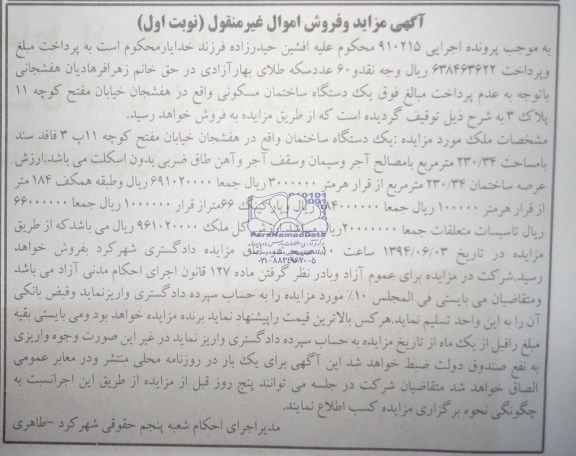 آگهی مزاید وفروش اموال غیرمنقول (نوبت اول)
به موجب پرونده اجرایی ۹۱۰۲۱۵ محکوم علیه افشین حیدرزاده فرزند خدایارمحکوم است به پرداخت مبلغ
وپرداخت ۶۳۸۴۶۳۶۲۲ ریال وجه نقدو۶۰ عددسکه طلای بهارآزادی در حق خانم زهرافرهادیان هفشجانی
باتوجه به عدم پرداخت مبالغ فوق یک دستگاه ساختمان مسکونی واقع در هفشجان خیابان مفتح کوچه ۱۱
پلاک ۳ به شرح ذیل توقیف گردیده است که از طریق مزایده به فروش خواهد رسید.
مشخصات ملک مورد مزایده :یک دستگاه ساختمان واقع در هفشجان خیابان مفتح کوچه ۱۱پ ۳ فاقد سند
بامساحت ۲۳۰/۳۴ مترمربع بامصالح آجر وسیمان وسقف آجر وآهن طاق ضربی بدون اسکلت می باشد.ارزش
عرصه ساختمان ۲۳۰/۳۴ مترمربع از قرار هرمتر ۳۰۰۰۰۰۰ ریال جمعا ۶۹۱۰۲۰۰۰۰ ریال وطبقه همکف ۱۸۴ متر
از قرار هرمتر ۱۰۰۰۰۰۰ ریال جمعا ۱۸۴۰۰۰۰۰۰ ریال ۶۶متراز قرار ۱۰۰۰۰۰۰ ریال جمعا ۶۶۰۰۰۰۰۰
ریال تاسیسات متعلقات جمعا ۲۰۰۰۰۰۰۰ ریال کل ملک ۹۶۱۰۲۰۰۰۰ ریال می باشدکه از طریق
مزایده در تاریخ ۱۳۹۴/۰۶/۰۳ ساعت مزایده دادگستری شهرکرد بفروش خواهد
رسید.شرکت در مزایده برای عموم آزاد وبادر نظر گرفتن ماده ۱۲۷ قانون اجرای احکام مدنی آزاد می باشد
ومتقاضیان می بایستی فی المجلس ۱۰٪ مورد مزایده را به حساب سپرده دادگستری واریزنماید وقبض بانکی
آن را به این واحد تسلیم نماید.هرکس بالاترین قیمت راپیشنهاد نماید برنده مزایده خواهد بود ومی بایستی بقیه
مبلغ راقبل از یک ماه از تاریخ مزایده به حساب سپرده دادگستری واریز نماید در غیر این صورت وجوه واریزی
به نفع صندوق دولت ضبط خواهد شد این آگهی برای یک بار در روزنامه محلی منتشر ودر معابر عمومی
الصاق خواهد شد متقاضیان شرکت در جلسه می توانند پنج روز قبل از مزایده از طریق این اجرانسبت به
چگونگی نحوه برگزاری مزایده کسب اطلاع نمایند.
مدیراجرای احکام شعبه پنجم حقوقی شهرکرد -طاهری
ParsNamadData
۰۲۱-۸۸۳۴۹۶۷۰-۵